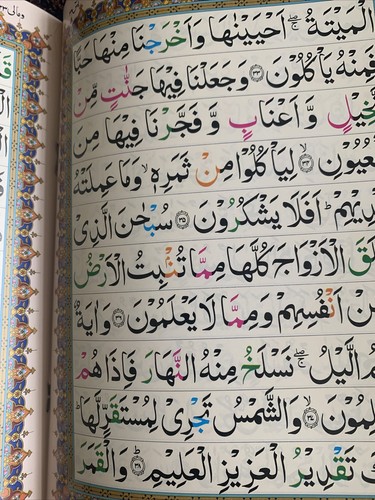 الْمَيْتَةُ ۚۖ اَحْيَيْنٰهَا وَاَخْرَجْنَا مِنْهَا حَبًّا
فَمِنْهُ يَاْكُلُوْنَ ﴿۳۳﴾ وَجَعَلْنَا فِيْهَا جَنّٰتٍ مِّنْ
خِيْلٍ وَّاَعْنَابٍ وَّفَجَّرْنَا فِيْهَا مِنَ
لْعُيُوْنِ ﴿۳۴﴾ لِيَاْكُلُوْا مِنْ ثَمَرِهٖ ۙ وَمَا عَمِلَتْهُ
يْدِيْهِمْ ؕ اَفَلَا يَشْكُرُوْنَ ﴿۳۵﴾ سُبْحٰنَ الَّذِىْ
لَقَ الْاَزْوَاجَ كُلَّهَا مِمَّا تُنْۢبِتُ الْاَرْضُ
مِنْ اَنْفُسِهِمْ وَمِمَّا لَا يَعْلَمُوْنَ ﴿۳۶﴾ وَاٰيَةٌ
مُ الَّيْلُ ۚۖ نَسْلَخُ مِنْهُ النَّهَارَ فَاِذَا هُمْ
لِمُوْنَ ﴿۳۷﴾ وَالشَّمْسُ تَجْرِىْ لِمُسْتَقَرٍّ لَّهَا ؕ
كَ تَقْدِيْرُ الْعَزِيْزِ الْعَلِيْمِ ﴿۳۸﴾ وَالْقَمَرَ